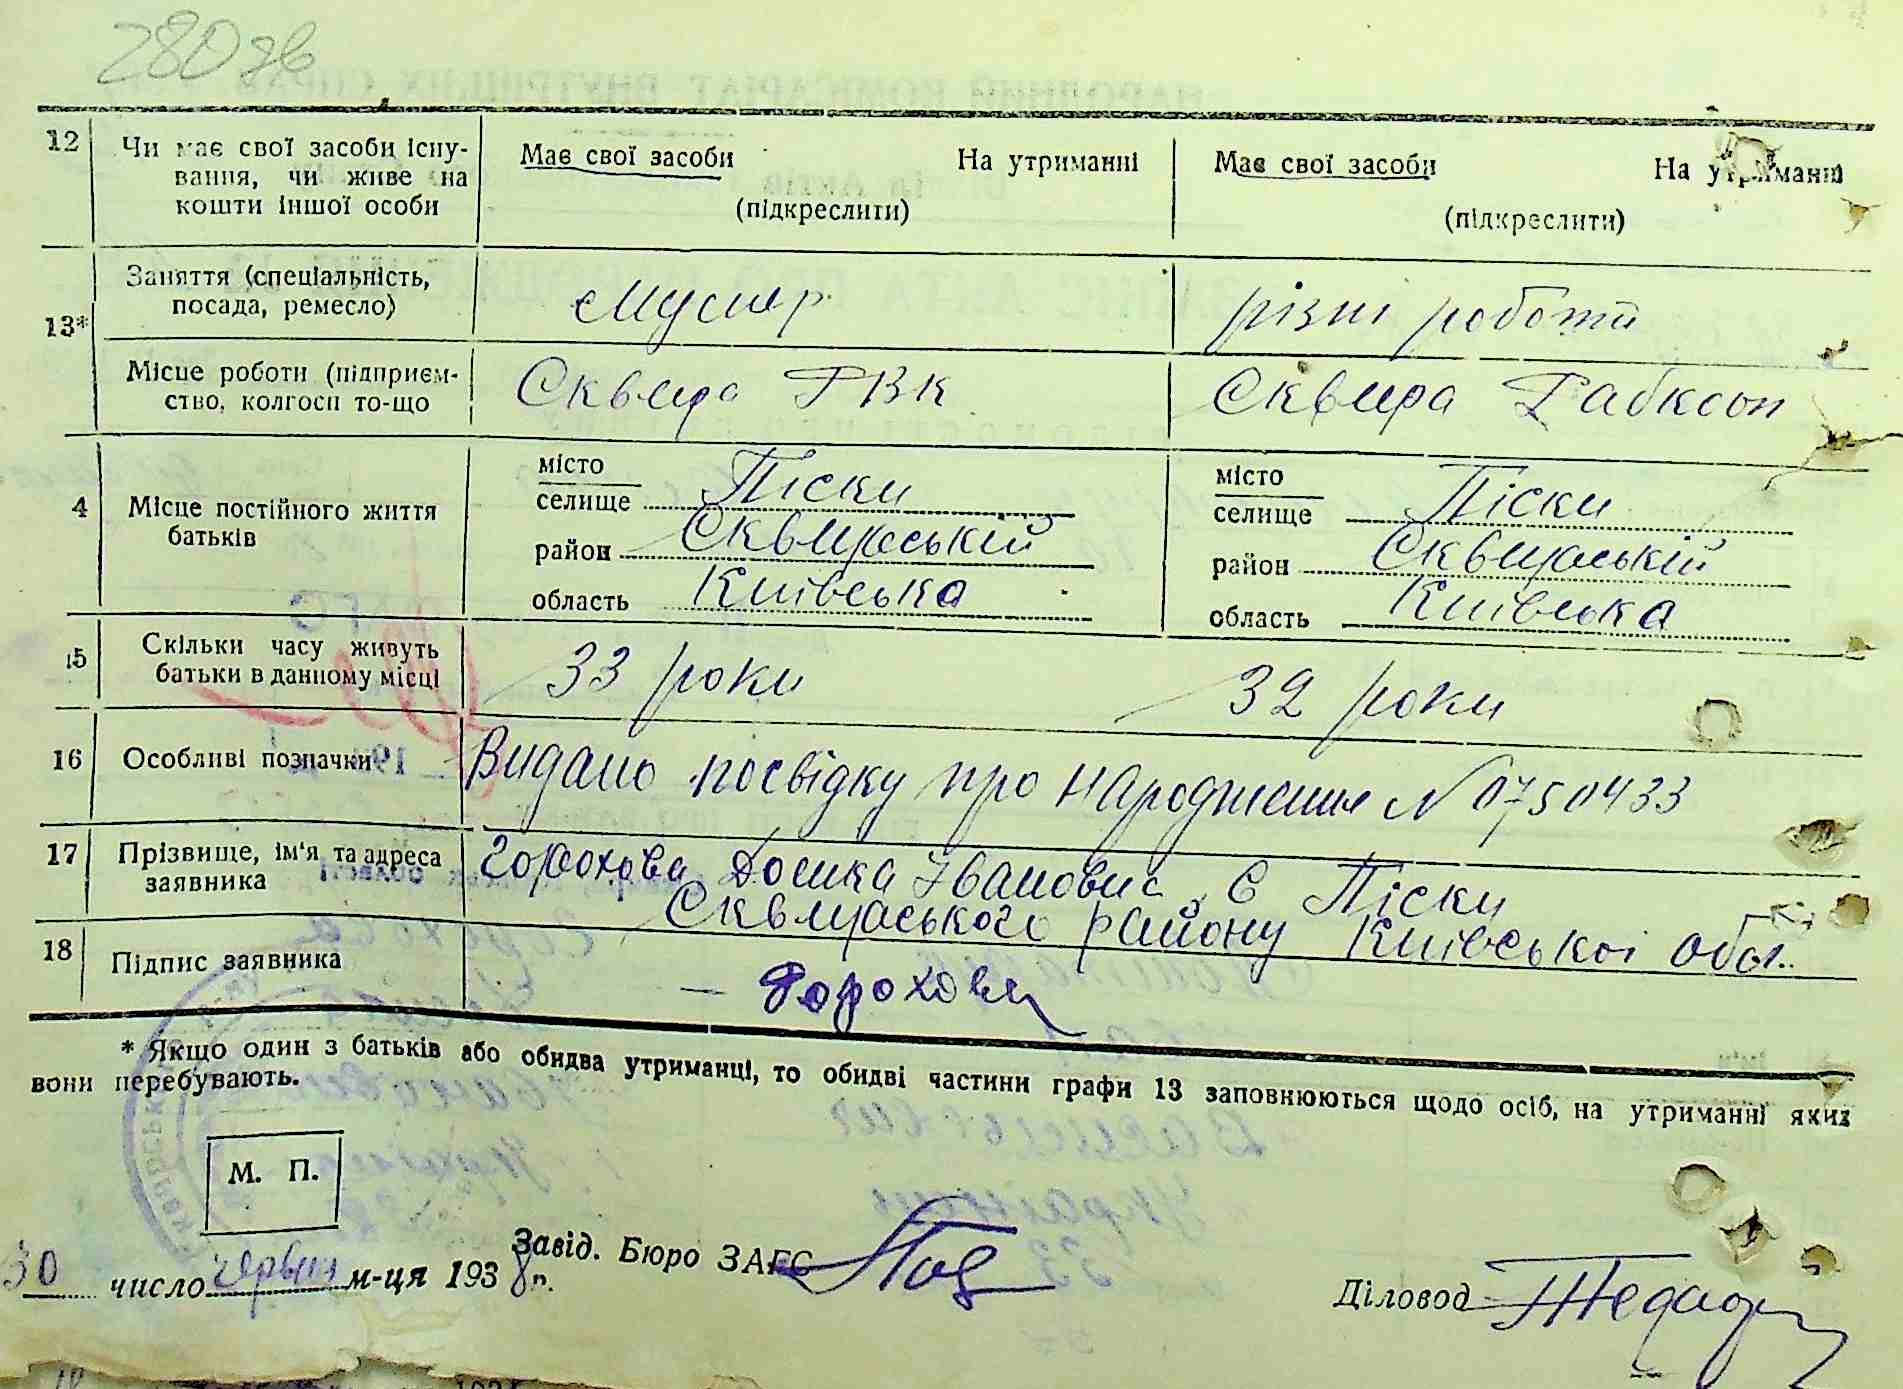 280 зв
12
Чи має свої засоби існу-
вання, чи живе на
кошти іншої особи
Має свої засоби На утриманні
(підкреслити)
Має свої засоби На утриманні
(підкреслити)
13*
Заняття (спеціальність,
посада, ремесло)
різні роботи
Місце роботи (підприєм-
ство, колгосп то-що
Сквира РВК
Сквира
4
Місце постійного життя
батьків
місто
селище Піски
район Сквирській
область Київська
місто
селище Піски
район Сквирській
область Київська
15
Скільки часу живуть
батьки в данному місці
33 роки
32 роки
16
Особливі позначки
Видано посвідку про народження N 0750433
17
Прізвище, ім'я та адреса
заявника
Горохова Іванович С Піски
Сквирського району Київської обл.
18
Підпис заявника
Горохова
* Якщо один з батьків або обидва утриманці, то обидві частини графи 13 заповнюються щодо осіб, на утриманні яких
вони перебувають.
М. П.
30 число червня м-ця 1938 р.
Завід. Бюро ЗАГС
Діловод